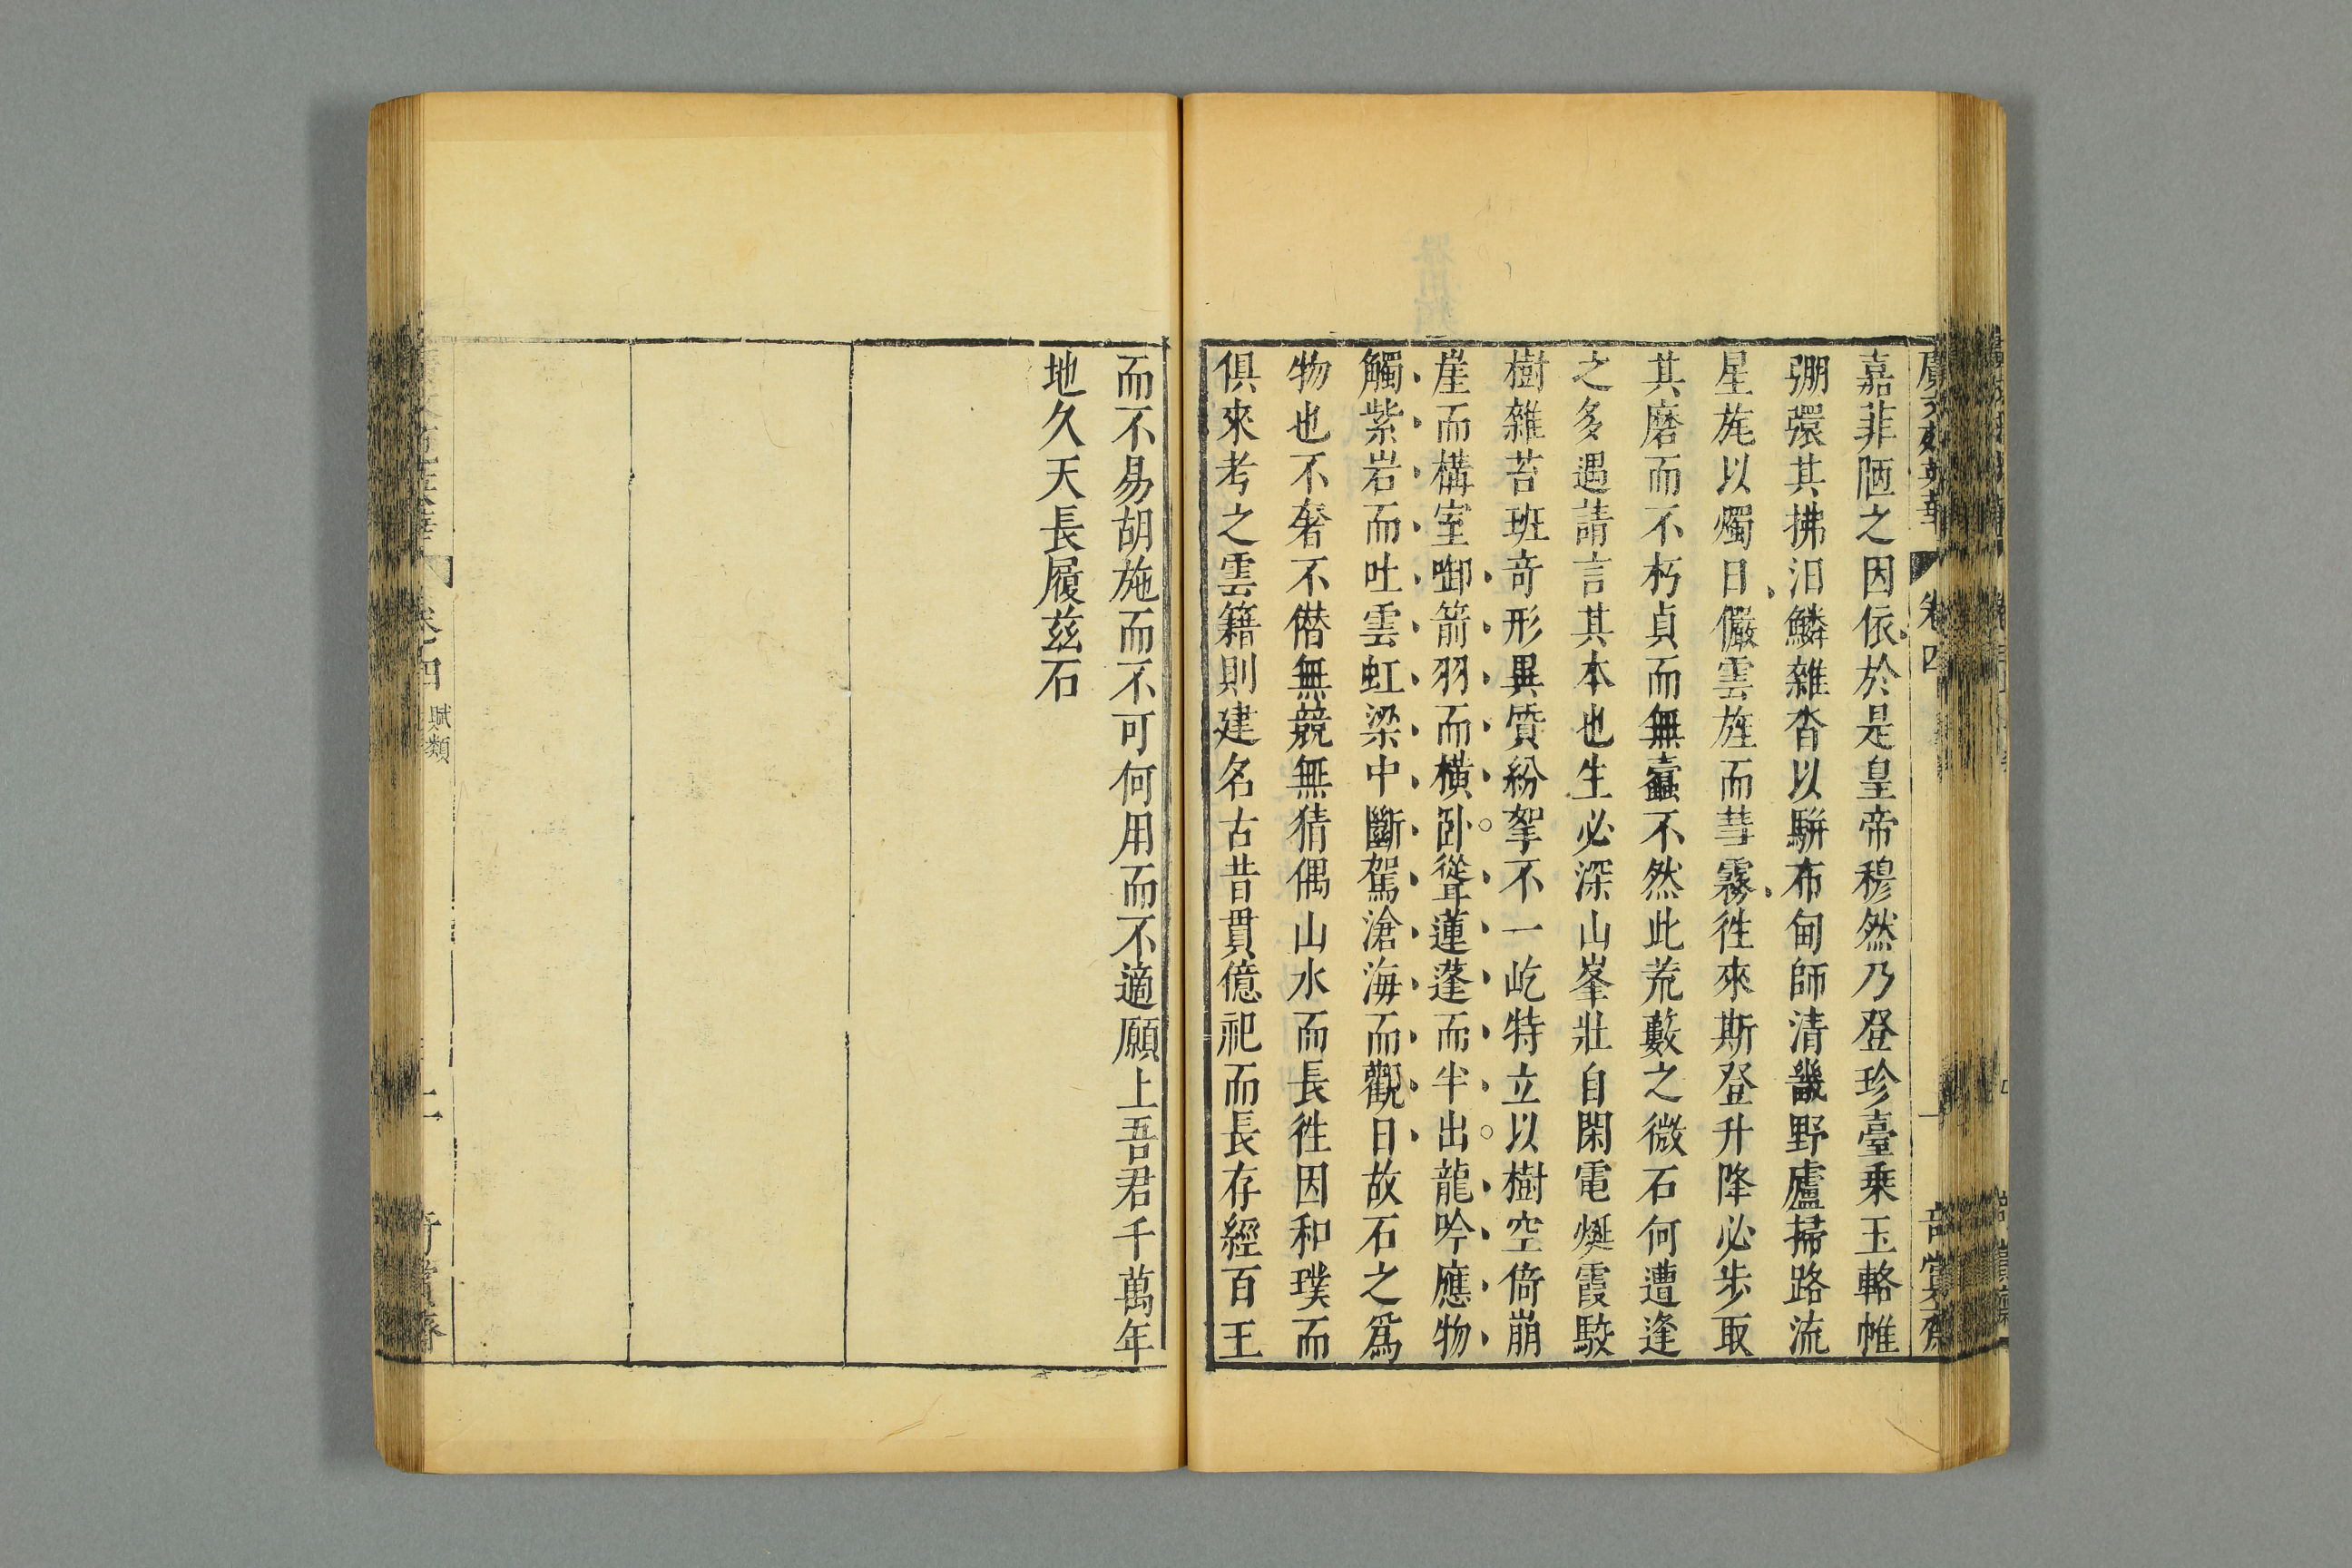 嘉菲陋之因依於是皇帝穆然乃登珍臺乗玉輅帷
弸彋其拂汨鱗雜沓以駢布甸師清畿野廬掃路流
星旄以燭日儼雲旌而彗霧徃來斯登升降必步取
其磨而不朽貞而無蠧不然此荒藪之微石何遭逢
之多遇請言其本也生必深山峯壯自閑電烻霞駮
樹雜苔班竒形異質紛挐不一屹特立以樹空倚崩
崖而構室啣箭羽而橫卧聳蓮蓬而半出龍吟應物
觸紫岩而吐雲虹梁中斷駕滄海而觀日故石之爲
物也不奢不僣無競無猜偶山水而長徃因和璞而
俱來考之雲籍則建名古昔貫億祀而長存經百王
而不易胡施而不可何用而不適願上吾君千萬年
地久天長履茲石
卷四
賦類
二